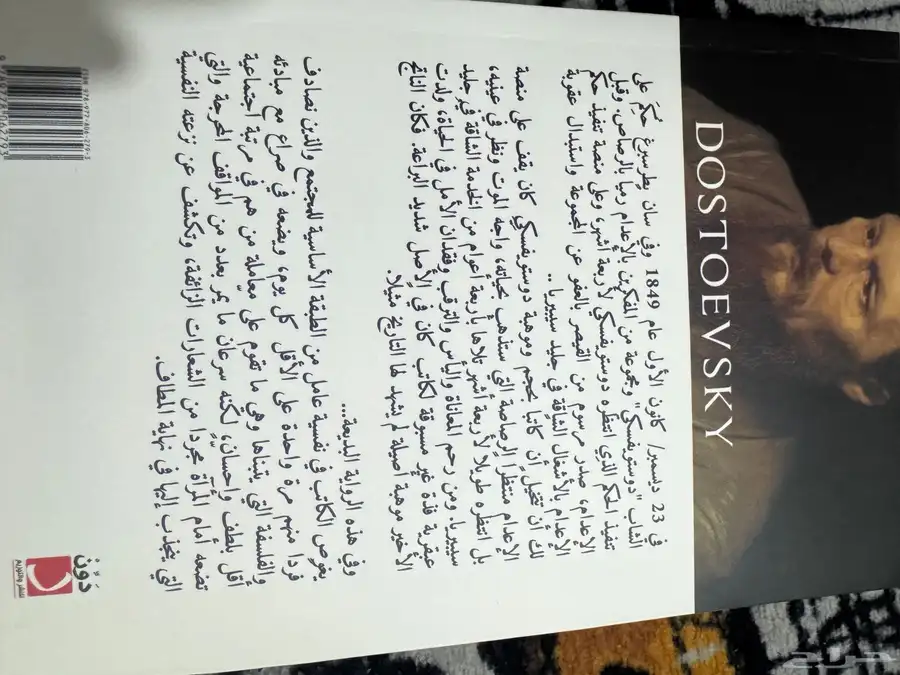 DOSTOEVSKY
في 23 ديسمبر/ كانون الأول عام 1849 وفي سان بطرسبرغ حُكِمَ على
الشاب "دوستويفسكي" ومجموعة من المفكرين بالإعدام رميا بالرصاص. وقبل
تنفيذ الحكم الذي انتظره دوستويفسكي لأربعة أشهر، وعلى منصة تنفيذ حكم
الإعدام، صدر مرسوم من القيصر بالعفو عن المجموعة واستبدال عقوبة
الإعدام بالأشغال الشاقة في جليد سيبيريا..
لك أن تتخيل أن كاتبا بحجم وموهبة دوستويفسكي كان يقف على منصة
الإعدام منتظرا الرصاصة التي ستذهب بحياته، واجه الموت ونظر في عينيه،
بل انتظره طويلا لأربعة أشهر تلاها بأربعة أعوام من الخدمة الشاقة في جليد
سيبيريا، ومن رحم المعاناة واليأس والترقب وفقدان الأمل في الحياة، ولدت
عبقرية فذة غير مسبوقة لكاتب كان في الأصل شديد البراعة. فكان الناتج
الأخير موهبة أصيلة لم يشهد لها التاريخ مثيلا.
وفي هذه الرواية البديعة...
يغوص الكاتب في نفسية عامل من الطبقة الأساسية للمجتمع والذين نصادف
فردا منهم مرة واحدة على الأقل كل يوم، ويضعه في صراع مع مبادئه
والفلسفة التي يتبناها وهي ما تقوم على معاملة من هم في مرتبة اجتماعية
أقل بلطف وإحسان، لكنه سرعان ما يمر بعدد من المواقف المحرجة والتي
تضعه أمام المرآة مجردا من الشعارات الزائفة، وتكشف عن نزعته النفسية
التي ينجذب إليها في نهاية المطاف.
دَوِّنْ
للنشر والتوزيع
حراج